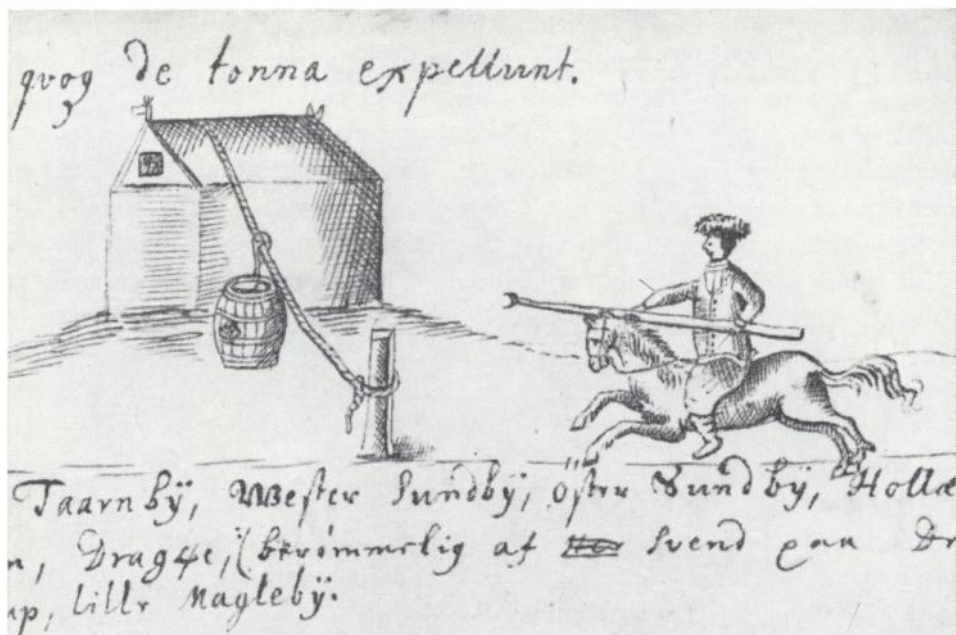 qvog de tonna expellunt.
Taarnbÿ, Wester Sundbÿ, Öster Sundbÿ, Hollæ
n, Dragøe, (berømmelig af Svend paa Dr
ap, lille Maglebÿ.